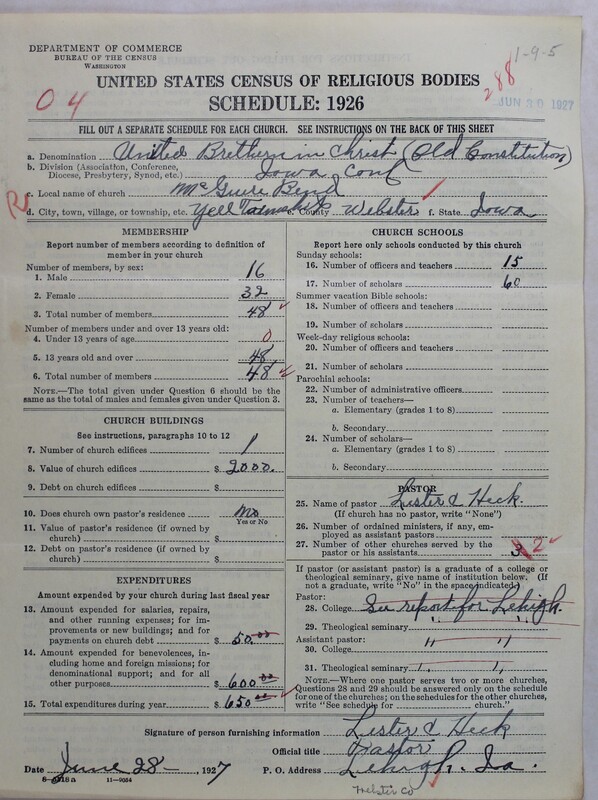 1-9-5
DEPARTMENT OF COMMERCE
BUREAU OF THE CENSUS
WASHINGTON
288
UNITED STATES CENSUS OF RELIGIOUS BODIES
04
SCHEDULE: 1926
JUN 30 1927
FILL OUT A SEPARATE SCHEDULE FOR EACH CHURCH. SEE INSTRUCTIONS ON THE BACK OF THIS SHEET
a. Denomination United Brethern in Christ (Old Constitution)
b. Division (Association, Conference, Diocese, Presbytery, Synod, etc.) Iowa Conf
c. Local name of church McGuire Bend
R
d. City, town, village, or township, etc. Yell Township e. County Webster f. State Iowa
MEMBERSHIP
Report number of members according to definition of
member in your church
Number of members, by sex:
1. Male 16
2. Female 32
3. Total number of members 48
Number of members under and over 13 years old:
4. Under 13 years of age 0
5. 13 years old and over 48
6. Total number of members 48
NOTE.—The total given under Question 6 should be
the same as the total of males and females given under Question 3.
CHURCH BUILDINGS
See instructions, paragraphs 10 to 12
7. Number of church edifices 1
8. Value of church edifices $ 2000.
9. Debt on church edifices $
10. Does church own pastor's residence? no
Yes or No
11. Value of pastor's residence (if owned by
church) $
12. Debt on pastor's residence (if owned by
church) $
EXPENDITURES
Amount expended by your church during last fiscal year
13. Amount expended for salaries, repairs,
and other running expenses; for im-
provements or new buildings; and for
payments on church debt $ 50.00
14. Amount expended for benevolences, in-
cluding home and foreign missions; for
denominational support; and for all
other purposes $ 600.00
15. Total expenditures during year $ 650.00
CHURCH SCHOOLS
Report here only schools conducted by this church
Sunday schools:
16. Number of officers and teachers 15
17. Number of scholars 60
Summer vacation Bible schools:
18. Number of officers and teachers
19. Number of scholars
Week-day religious schools:
20. Number of officers and teachers
21. Number of scholars
Parochial schools:
22. Number of administrative officers
23. Number of teachers—
a. Elementary (grades 1 to 8)
b. Secondary
24. Number of scholars—
a. Elementary (grades 1 to 8)
b. Secondary
PASTOR
25. Name of pastor Lester E Heck.
(If church has no pastor, write "None")
26. Number of ordained ministers, if any, em-
ployed as assistant pastors
27. Number of other churches served by the
pastor or his assistants 3 2
If pastor (or assistant pastor) is a graduate of a college or
theological seminary, give name of institution below. (If
not a graduate, write "No" in the space indicated.)
Pastor:
28. College See report for Lehigh.
29. Theological seminary " "
Assistant pastor:
30. College " "
31. Theological seminary " "
NOTE.—Where one pastor serves two or more churches,
Questions 28 and 29 should be answered only on the schedule
for one of the churches; on the schedules for the other churches,
write "See schedule for ____ church."
Signature of person furnishing information Lester E Heck
Official title Pastor
Date June 28 - , 1927 P. O. Address Lehigh, Ia.
8—6318a 11—9064
Webster Co